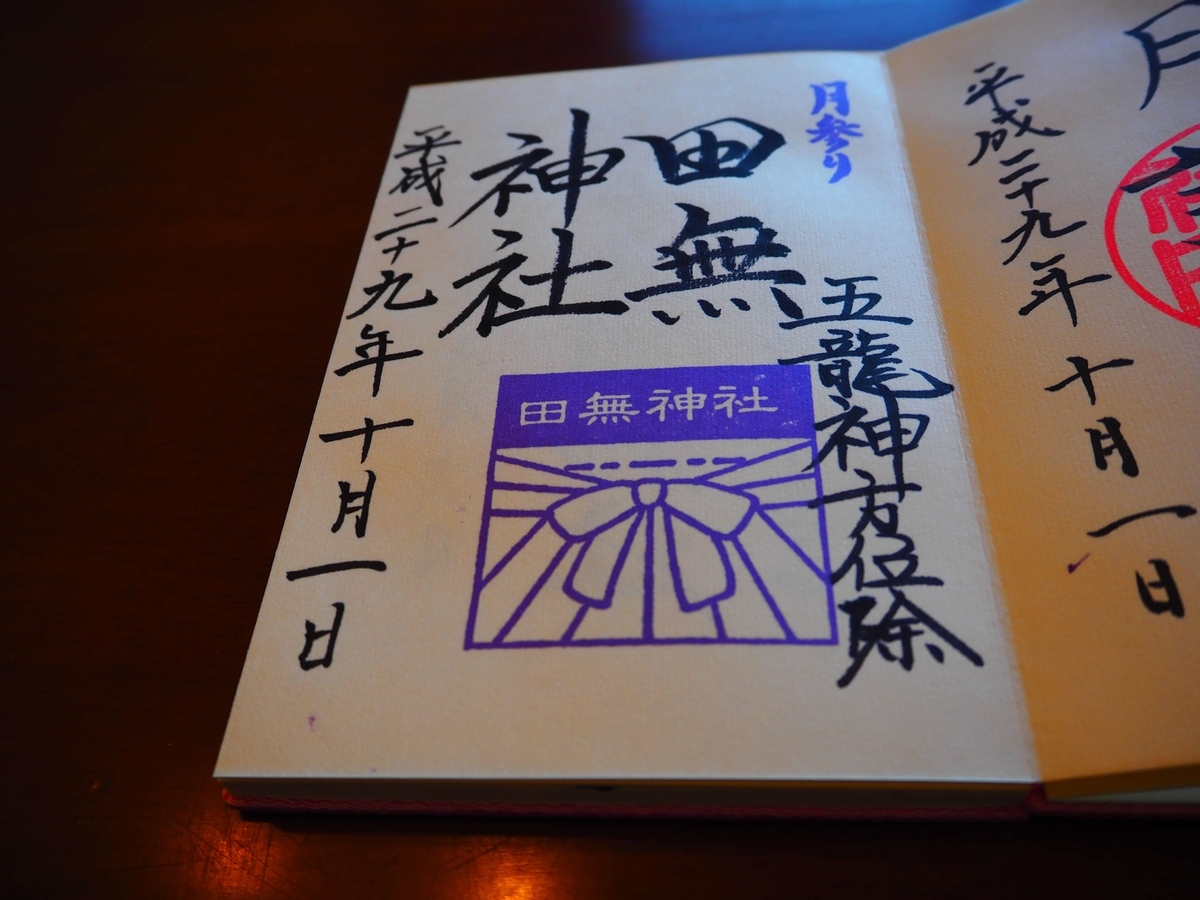 月参り
五龍神方位除
田無
神社
田無神社
平成二十九年十月一日
平成二十九年十月一日
月